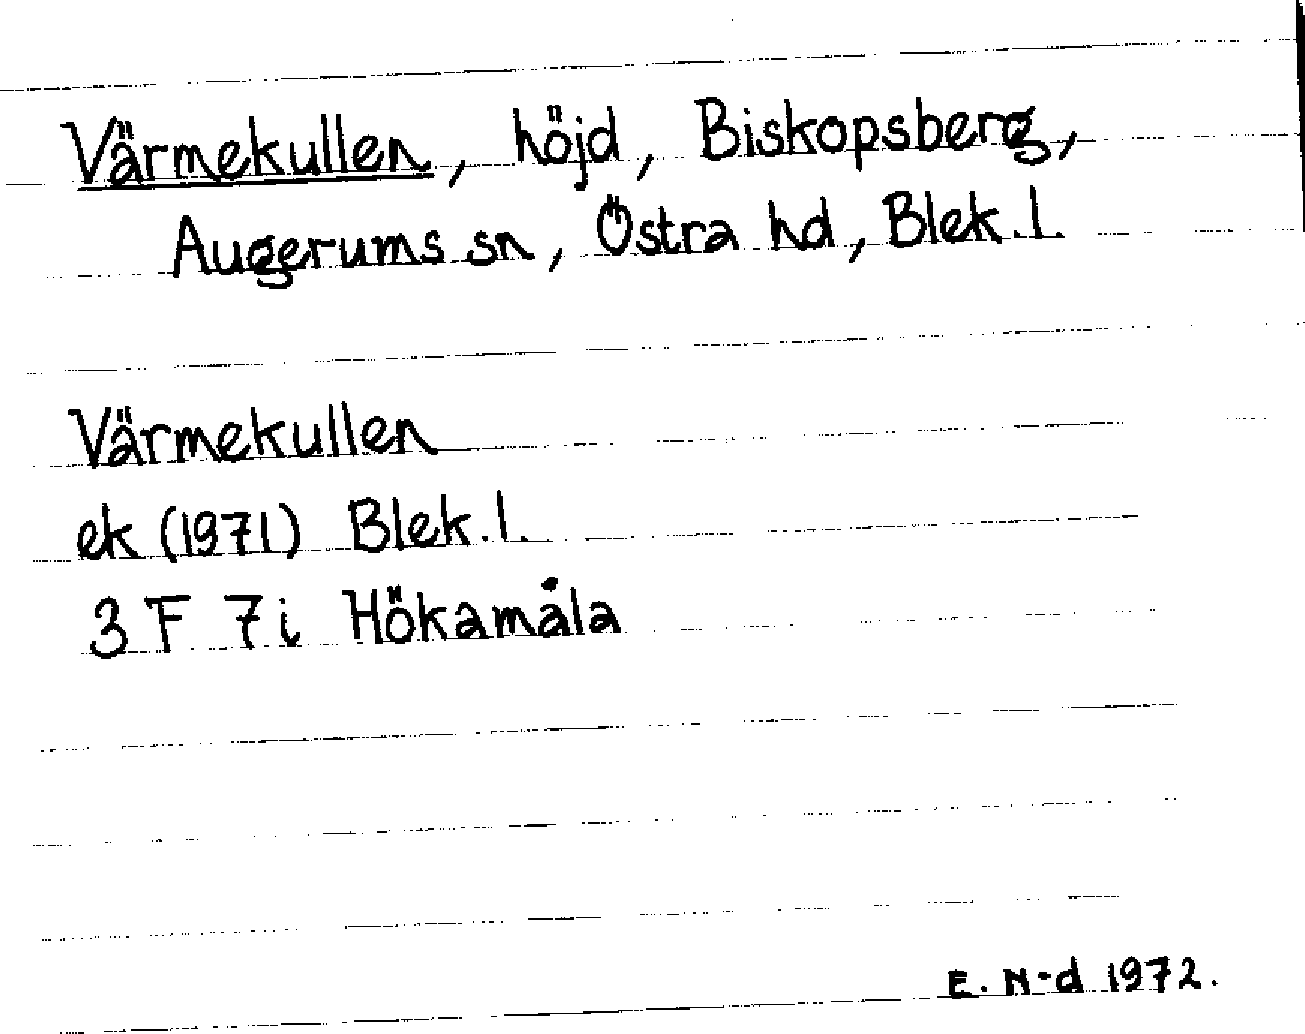 Värmekullen, höjd, Biskopsberg,
Augerums sn, Östra hd, Blek. l.
Värmekullen
ek (1971) Blek. l.
3 F 7i Hökamåla
E. N-d 1972.